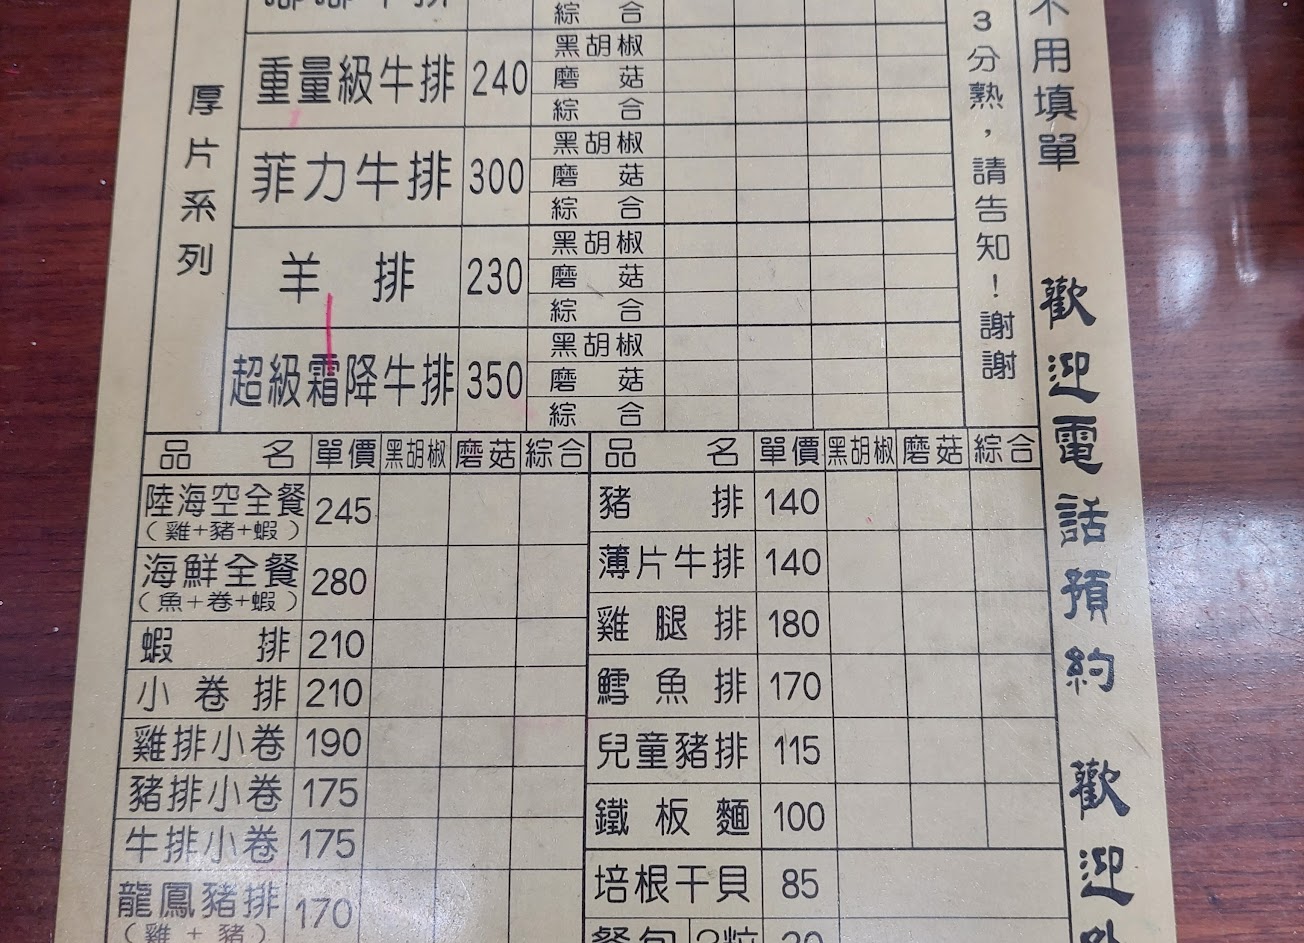 綜合
厚片系列
重量級牛排 240 黑胡椒
磨菇
綜合
菲力牛排 300 黑胡椒
磨菇
綜合
羊排 230 黑胡椒
磨菇
綜合
超級霜降牛排 350 黑胡椒
磨菇
綜合
3分熟，請告知！謝謝
不用填單
歡迎電話預約
歡迎
品名 單價 黑胡椒 磨菇 綜合
陸海空全餐 245
（雞+豬+蝦）
海鮮全餐 280
（魚+卷+蝦）
蝦排 210
小卷排 210
雞排小卷 190
豬排小卷 175
牛排小卷 175
龍鳳豬排 170
（雞+豬）
品名 單價 黑胡椒 磨菇 綜合
豬排 140
薄片牛排 140
雞腿排 180
鱈魚排 170
兒童豬排 115
鐵板麵 100
培根干貝 85
餐包 2粒 20